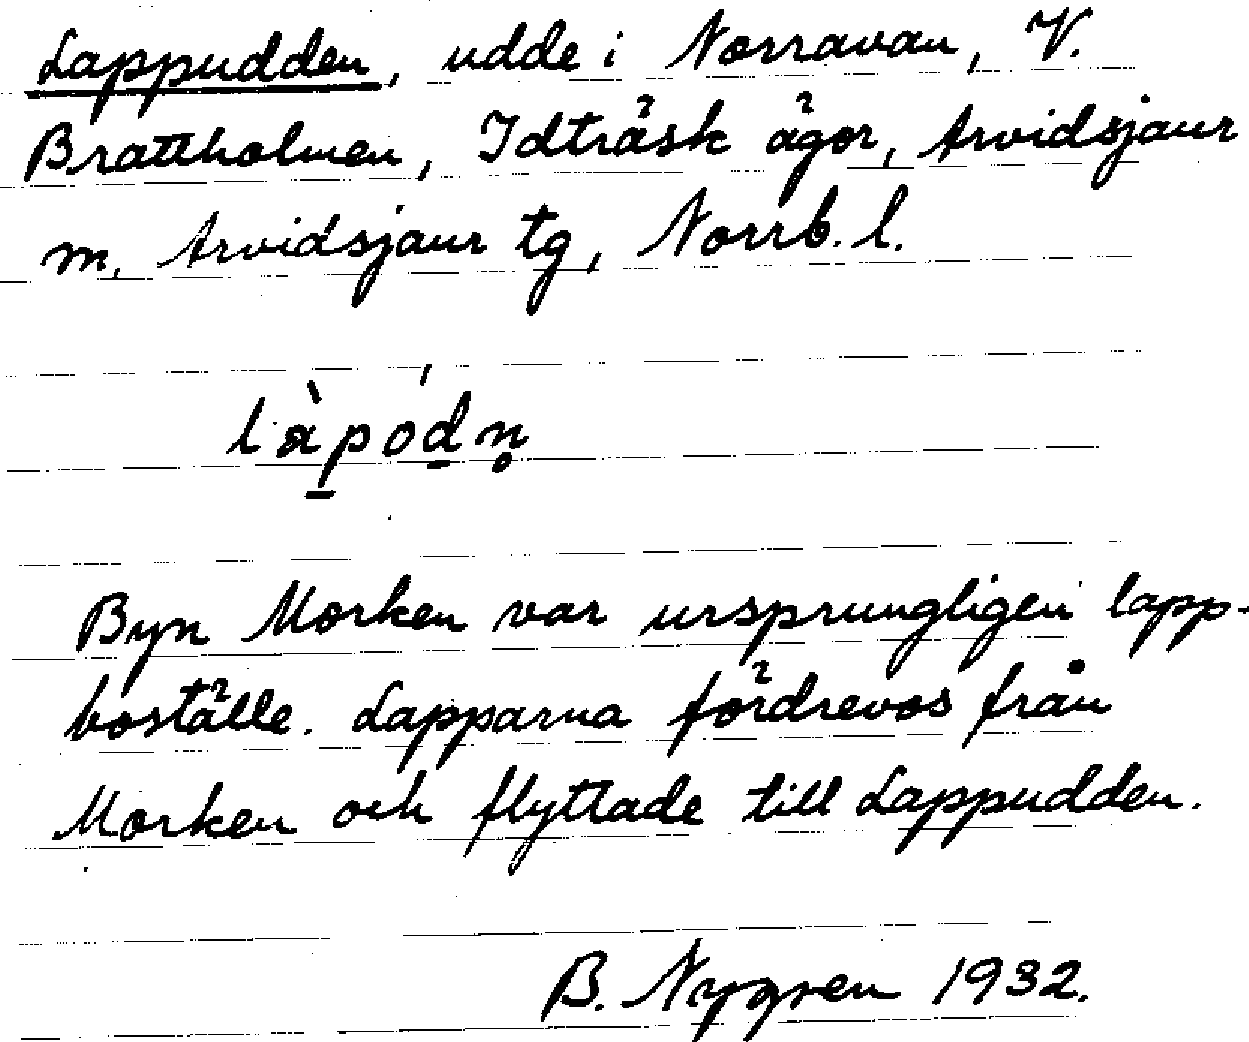 Lappudden, udde i Norravan, V.
Brattholmen, Idträsk ägor, Arvidsjaur
m, Arvidsjaur tg, Norrb. l.
là̱póḏn̥
Byn Morken var ursprungligen lapp-
boställe. Lapparna fördrevos från
Morken och flyttade till Lappudden.
B. Nygren 1932.